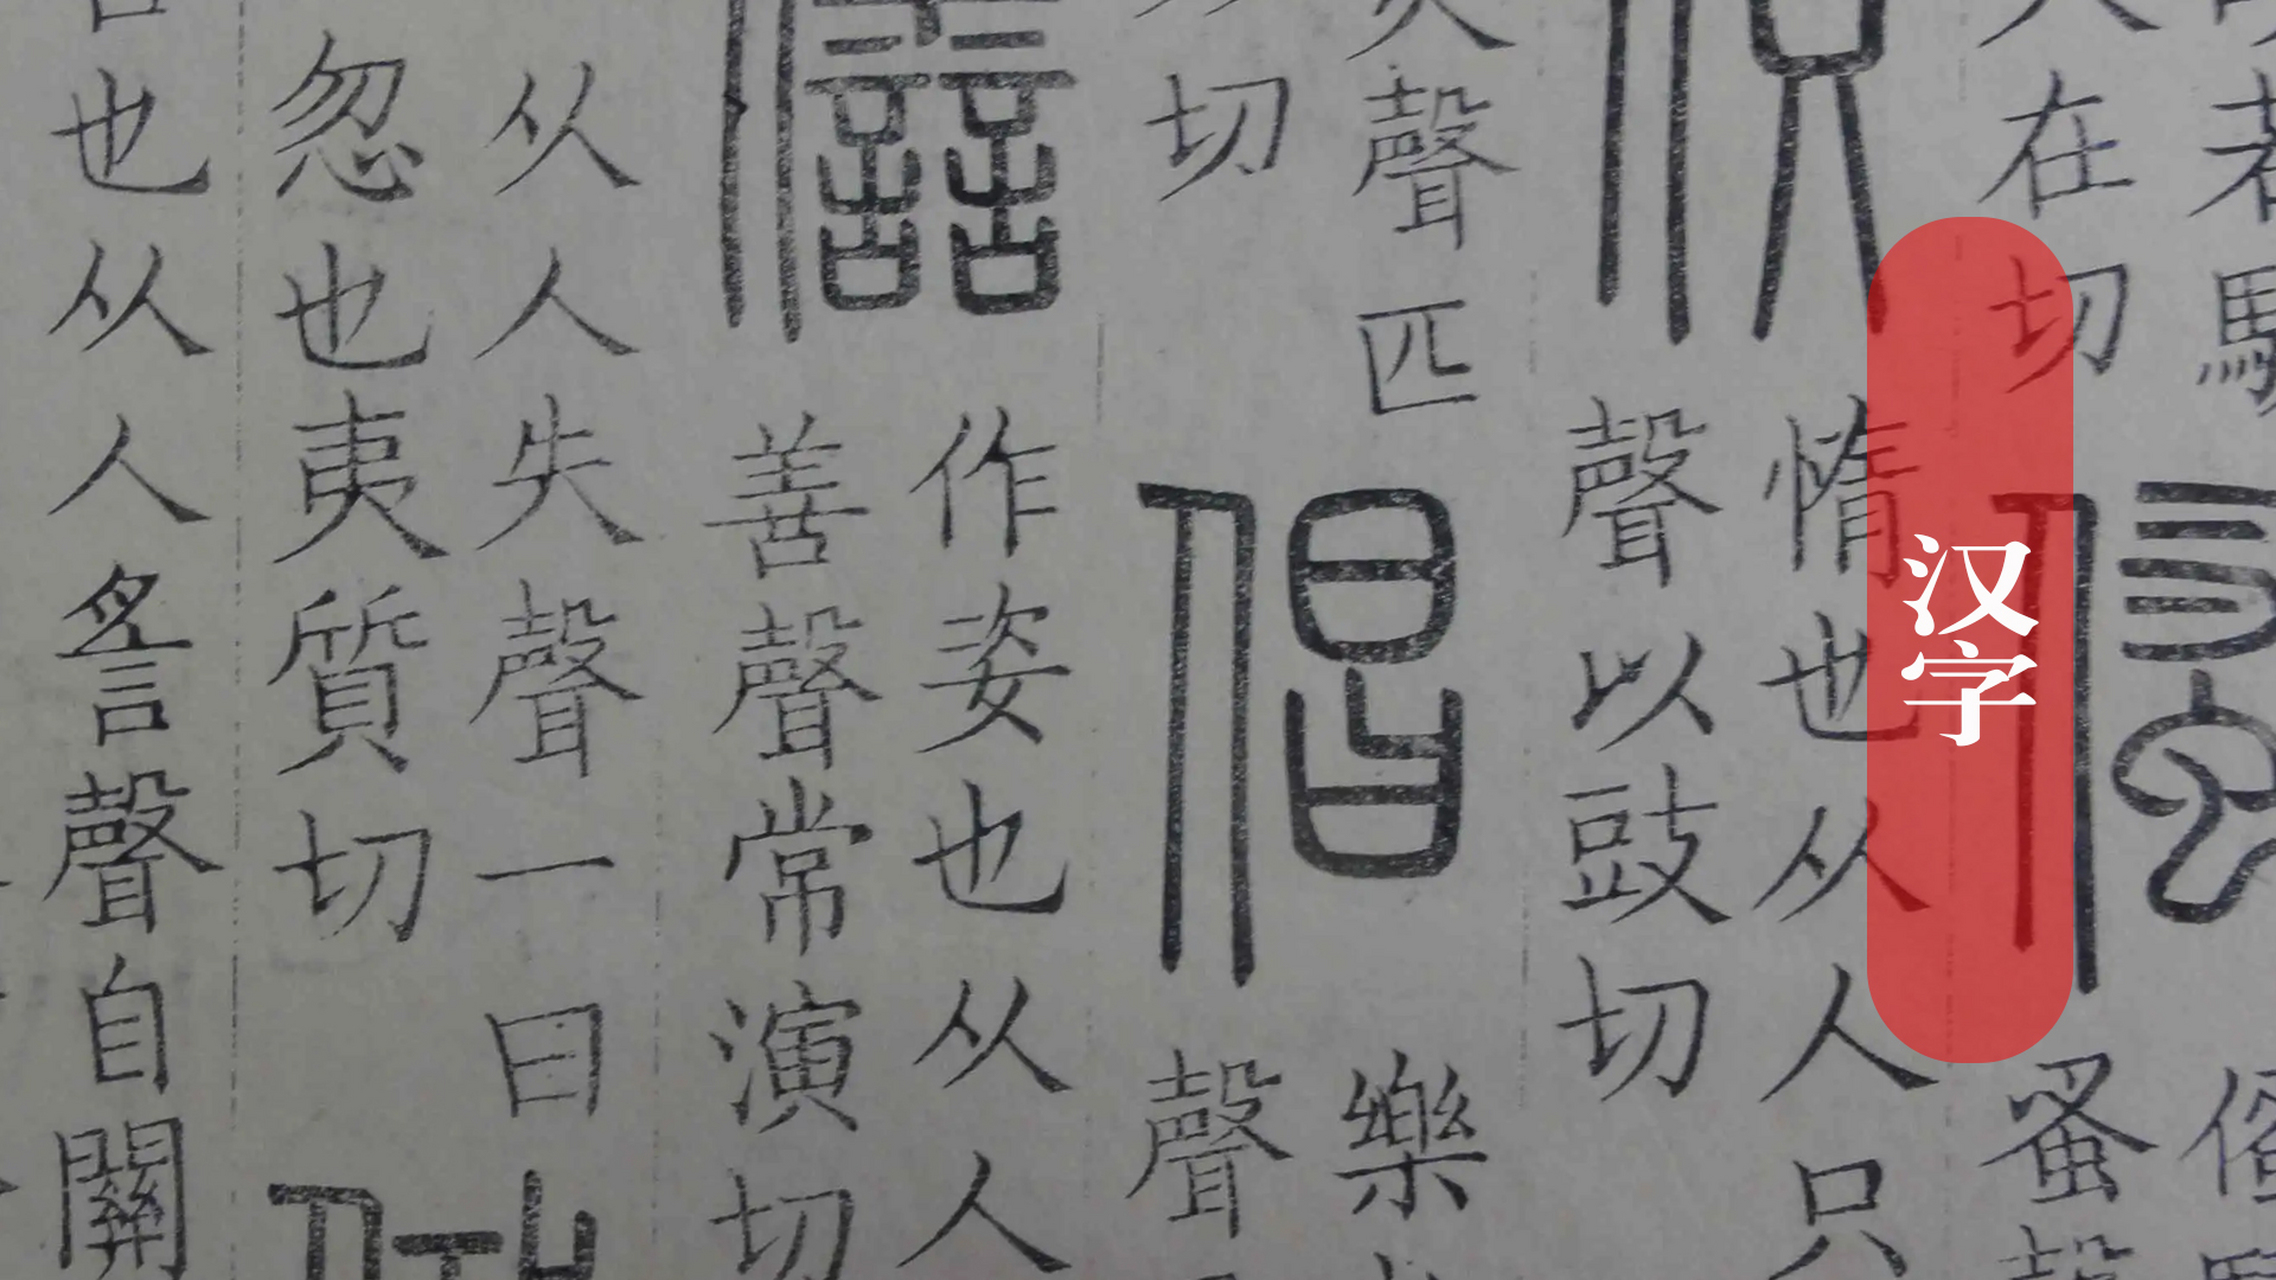 在切
蚤
伿
惰也从人只
聲以豉切
聲匹
切
倡
樂
聲
僐
作姿也从人
善聲常演切
从人失聲一曰
忽也夷質切
也从人䚻聲自關
汉字